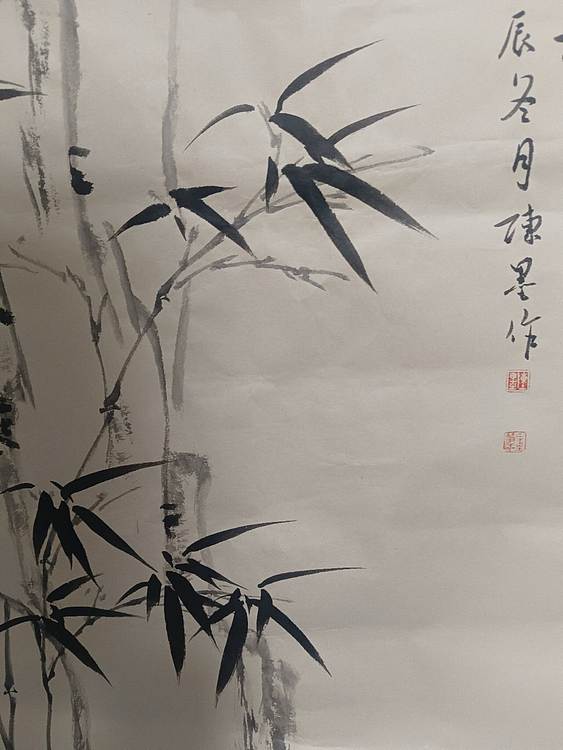 辰冬月陳墨作